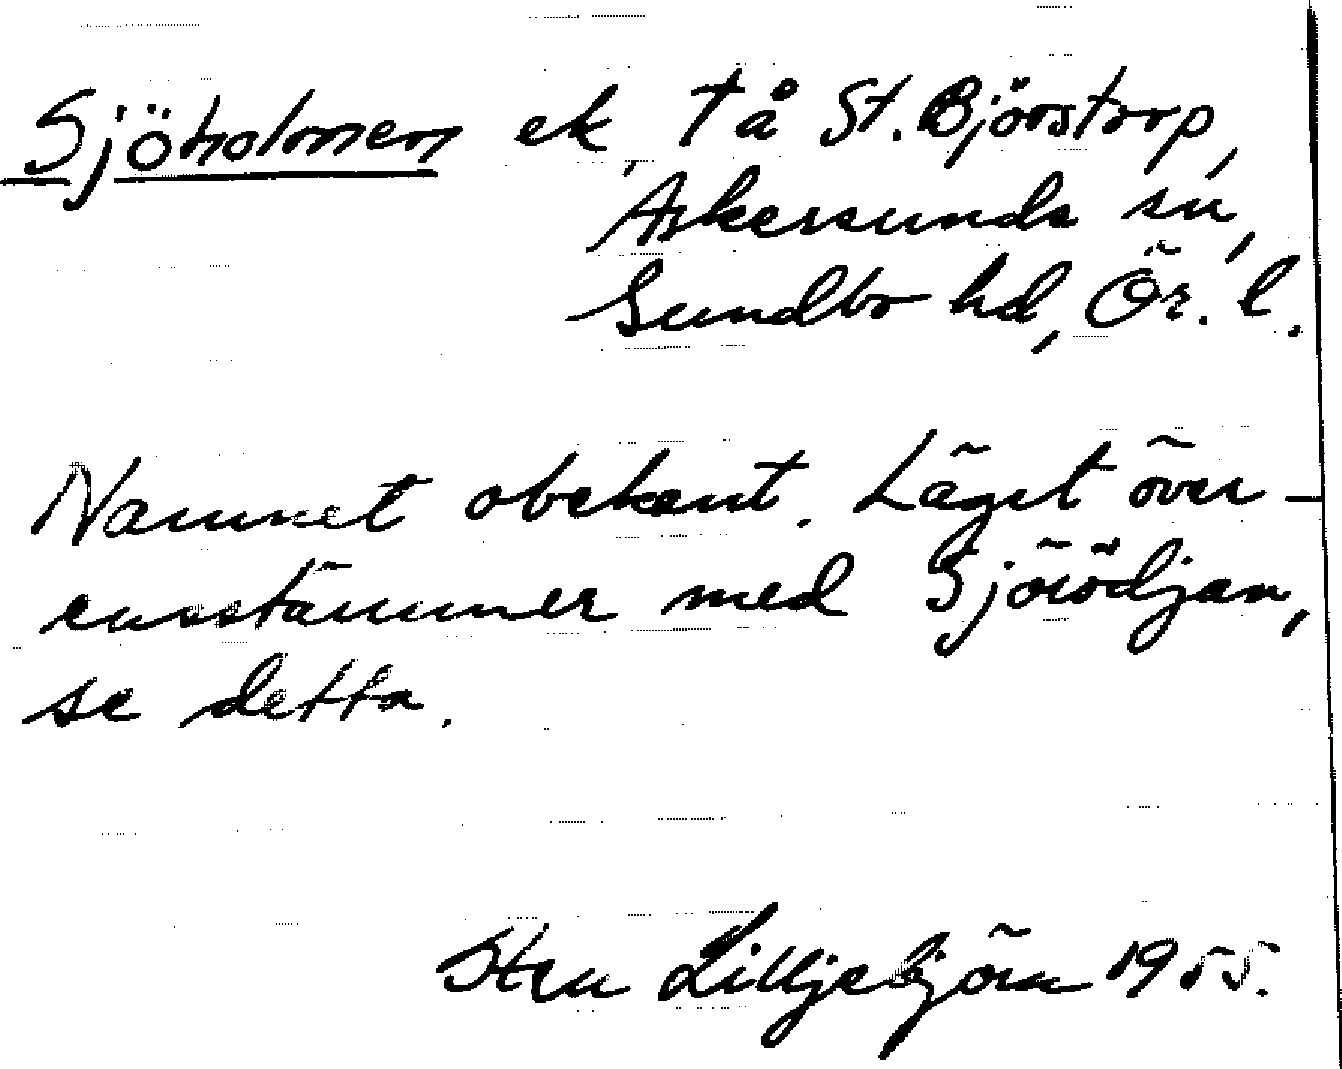 Sjöholmen ek, Tå St. Björstorp,
Askersunds sn,
Sundbo hd, Ör. l.
Namnet obekant. Läget över-
ensstämmer med Sjörödjan,
se detta.
Sten Lilljebjörn 1955.